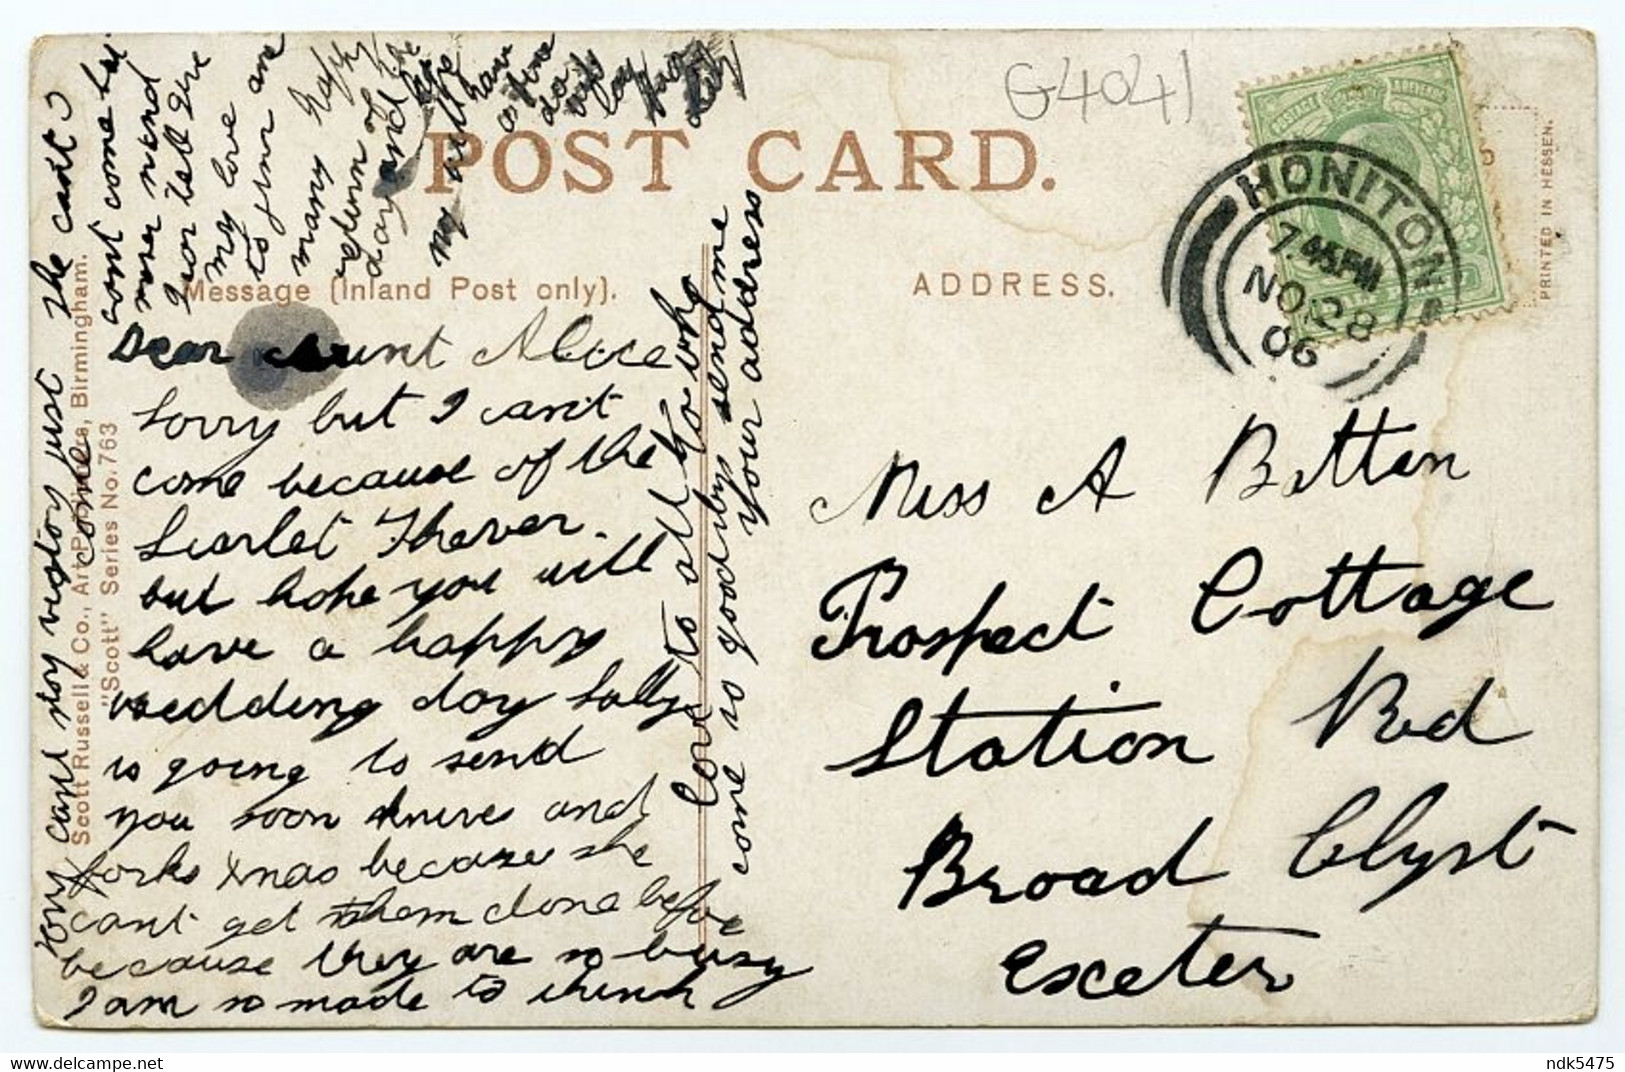 G4041
POST CARD.
HONITON
7.45PM
NO 28
06
PRINTED IN HESSEN.
Message (Inland Post only).
ADDRESS.
Scott Russell & Co., Art Printers, Birmingham.
"Scott" Series No. 763
Dear Aunt Alice
Sorry but I can't
come because of the
Scarlet Fhever.
but hope you will
have a happy
wedding day Sally
is going to send
you soon knives and
forks Xmas because she
can't get them done before
because they are so busy
I am so made to think
I can't
come but
never mind
my love
to Jim and
many happy
return of
day and
my will
have
a fine
day
Love to all
come so good by send me
your address
Miss A Bitten
Prospect Cottage
Station Rd
Broad Clyst
Exeter
ndk5475